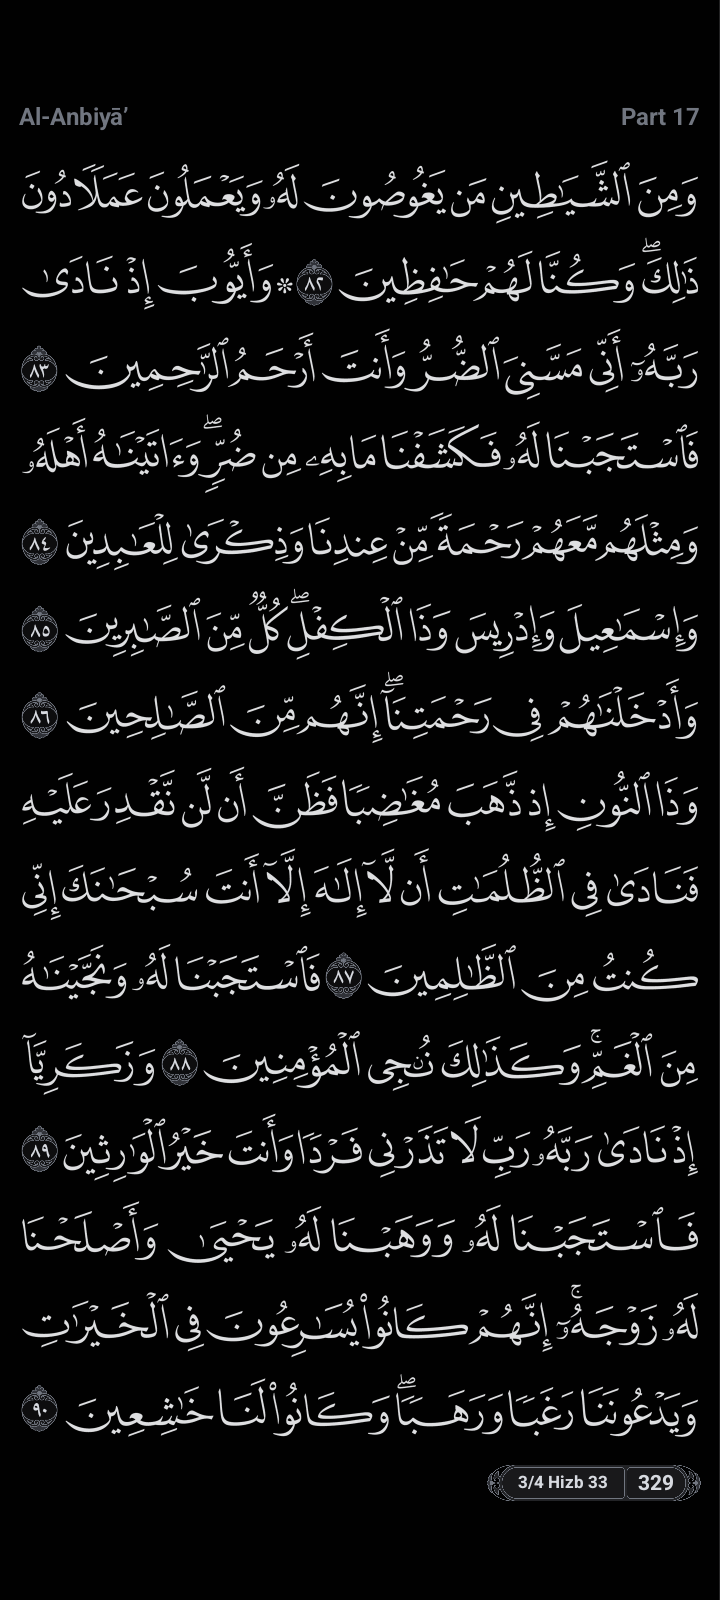 Al-Anbiyā’ Part 17
وَمِنَ ٱلشَّيَـٰطِينِ مَن يَغُوصُونَ لَهُۥ وَيَعْمَلُونَ عَمَلًا دُونَ
ذَٰلِكَ ۖ وَكُنَّا لَهُمْ حَـٰفِظِينَ ٨٢ ۞ وَأَيُّوبَ إِذْ نَادَىٰ
رَبَّهُۥٓ أَنِّى مَسَّنِىَ ٱلضُّرُّ وَأَنتَ أَرْحَمُ ٱلرَّٰحِمِينَ ٨٣
فَٱسْتَجَبْنَا لَهُۥ فَكَشَفْنَا مَا بِهِۦ مِن ضُرٍّ ۖ وَءَاتَيْنَـٰهُ أَهْلَهُۥ
وَمِثْلَهُم مَّعَهُمْ رَحْمَةً مِّنْ عِندِنَا وَذِكْرَىٰ لِلْعَـٰبِدِينَ ٨٤
وَإِسْمَـٰعِيلَ وَإِدْرِيسَ وَذَا ٱلْكِفْلِ ۖ كُلٌّ مِّنَ ٱلصَّـٰبِرِينَ ٨٥
وَأَدْخَلْنَـٰهُمْ فِى رَحْمَتِنَآ ۖ إِنَّهُم مِّنَ ٱلصَّـٰلِحِينَ ٨٦
وَذَا ٱلنُّونِ إِذ ذَّهَبَ مُغَـٰضِبًا فَظَنَّ أَن لَّن نَّقْدِرَ عَلَيْهِ
فَنَادَىٰ فِى ٱلظُّلُمَـٰتِ أَن لَّآ إِلَـٰهَ إِلَّآ أَنتَ سُبْحَـٰنَكَ إِنِّى
كُنتُ مِنَ ٱلظَّـٰلِمِينَ ٨٧ فَٱسْتَجَبْنَا لَهُۥ وَنَجَّيْنَـٰهُ
مِنَ ٱلْغَمِّ ۚ وَكَذَٰلِكَ نُـۨجِى ٱلْمُؤْمِنِينَ ٨٨ وَزَكَرِيَّآ
إِذْ نَادَىٰ رَبَّهُۥ رَبِّ لَا تَذَرْنِى فَرْدًا وَأَنتَ خَيْرُ ٱلْوَٰرِثِينَ ٨٩
فَٱسْتَجَبْنَا لَهُۥ وَوَهَبْنَا لَهُۥ يَحْيَىٰ وَأَصْلَحْنَا
لَهُۥ زَوْجَهُۥٓ ۚ إِنَّهُمْ كَانُوا۟ يُسَـٰرِعُونَ فِى ٱلْخَيْرَٰتِ
وَيَدْعُونَنَا رَغَبًا وَرَهَبًا ۖ وَكَانُوا۟ لَنَا خَـٰشِعِينَ ٩٠
3/4 Hizb 33 329